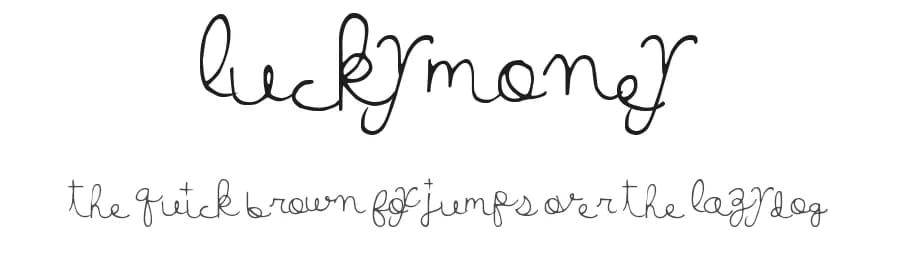 luckymoney
the quick brown fox jumps over the lazy dog